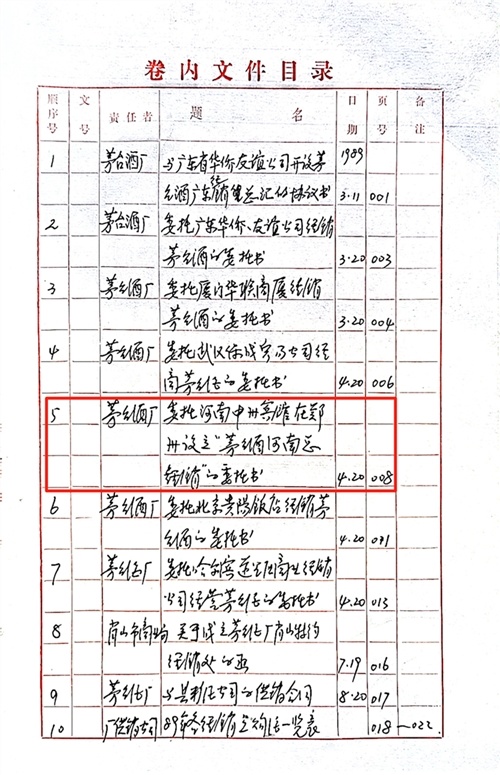 卷内文件目录
顺序号 文号 责任者 题名 日期 页号 备注
1 茅台酒厂 与广东省华侨友谊公司开设茅 1989
台酒广东经销总汇的协议书 3.11 001
2 茅台酒厂 委托广东华侨、友谊公司经销
茅台酒的委托书 3.20 003
3 茅台酒厂 委托厦门华联商厦经销
茅台酒的委托书 3.20 004
4 茅台酒厂 委托武汉 公司经
茅台酒的委托书 4.20 006
5 茅台酒厂 委托河南中州宾馆在郑
州设立"茅台酒河南总
经销"的委托书 4.20 008
6 茅台酒厂 委托北京贵阳饭店经销茅
台酒的委托书 4.20 011
7 茅台酒厂 委托哈尔滨 商业经销
公司经营茅台酒的委托书 4.20 013
8 关于成立茅台酒厂 特约
经销处的函 7.19 016
9 茅台酒厂 与 公司的供销合同 8.20 017
10 厂供销公司 89年各经销 一览表 018-022